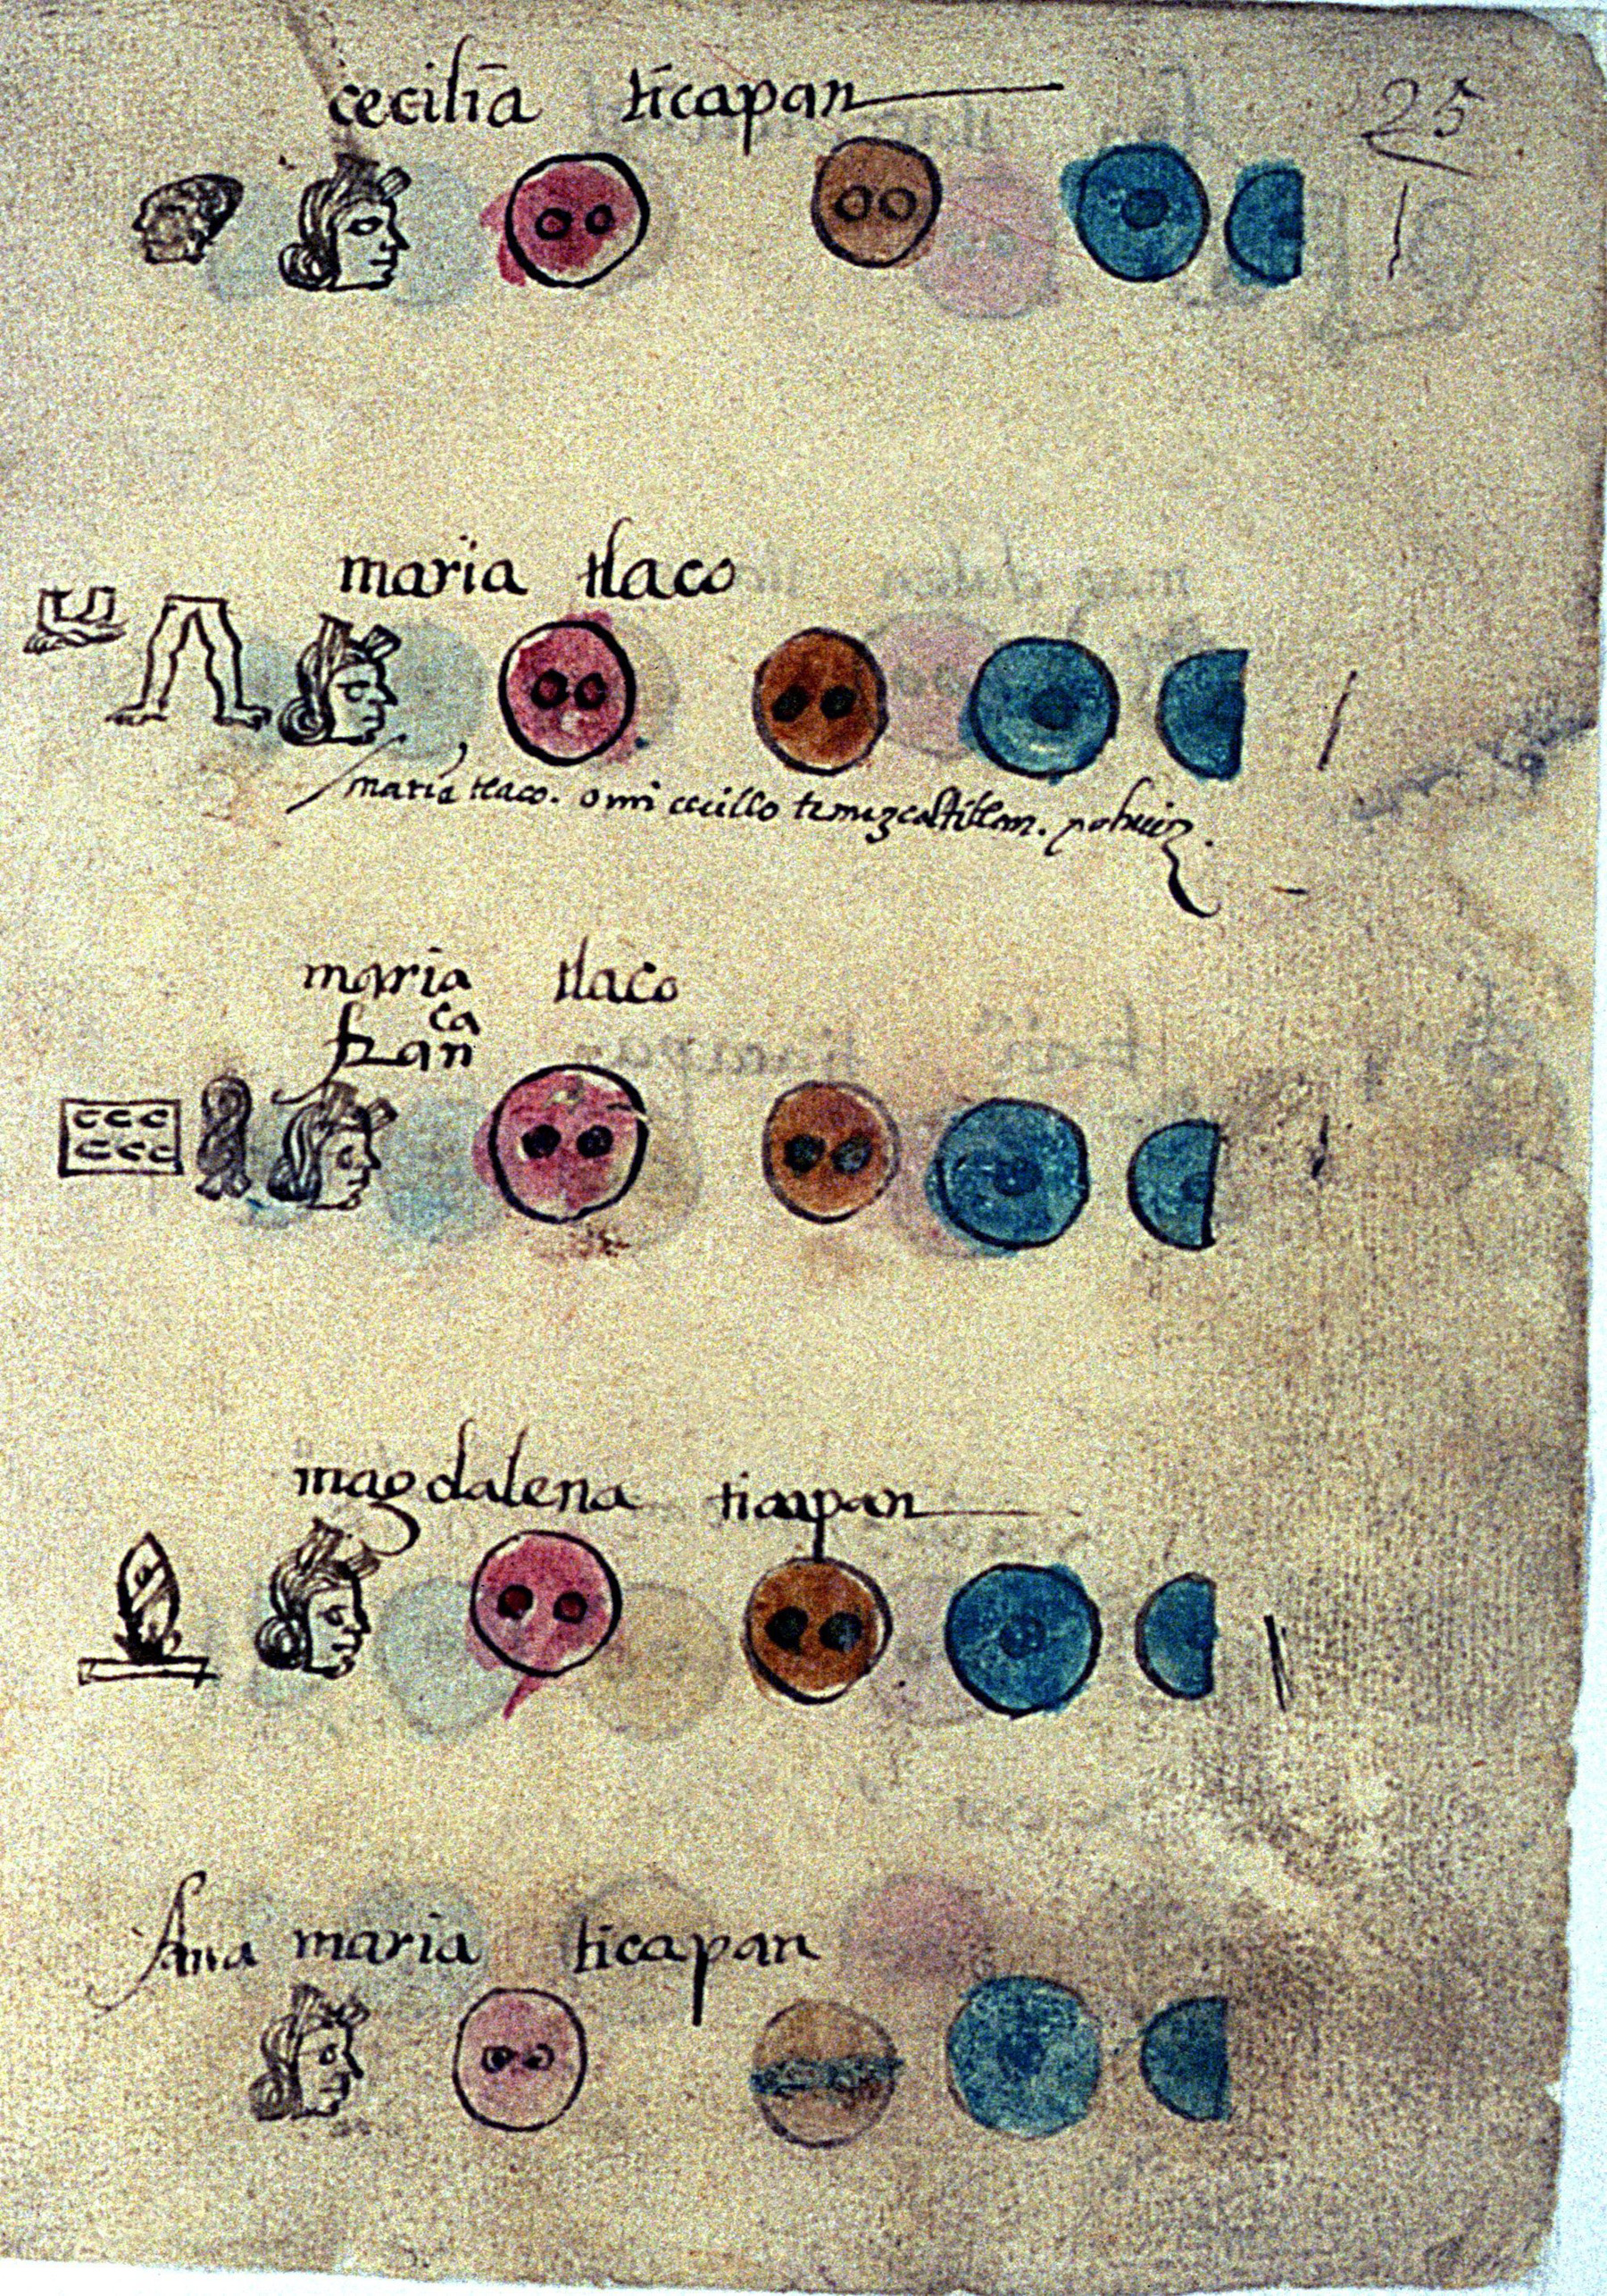 25
ceciliā ticapan
maria tlaco
maria tlaco. omiccuillo temazcaltitlan. pohuiz.
maria tlaco
franca
magdalena ticapan
Ana maria ticapan